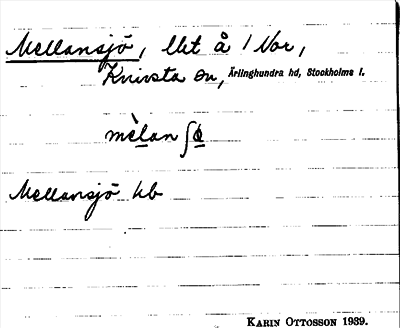 Mellansjö, lht å 1 Nor,
Knivsta sn, Ärlinghundra hd, Stockholms l.
mèlan ʃö
Mellansjö hb
KARIN OTTOSSON 1939.